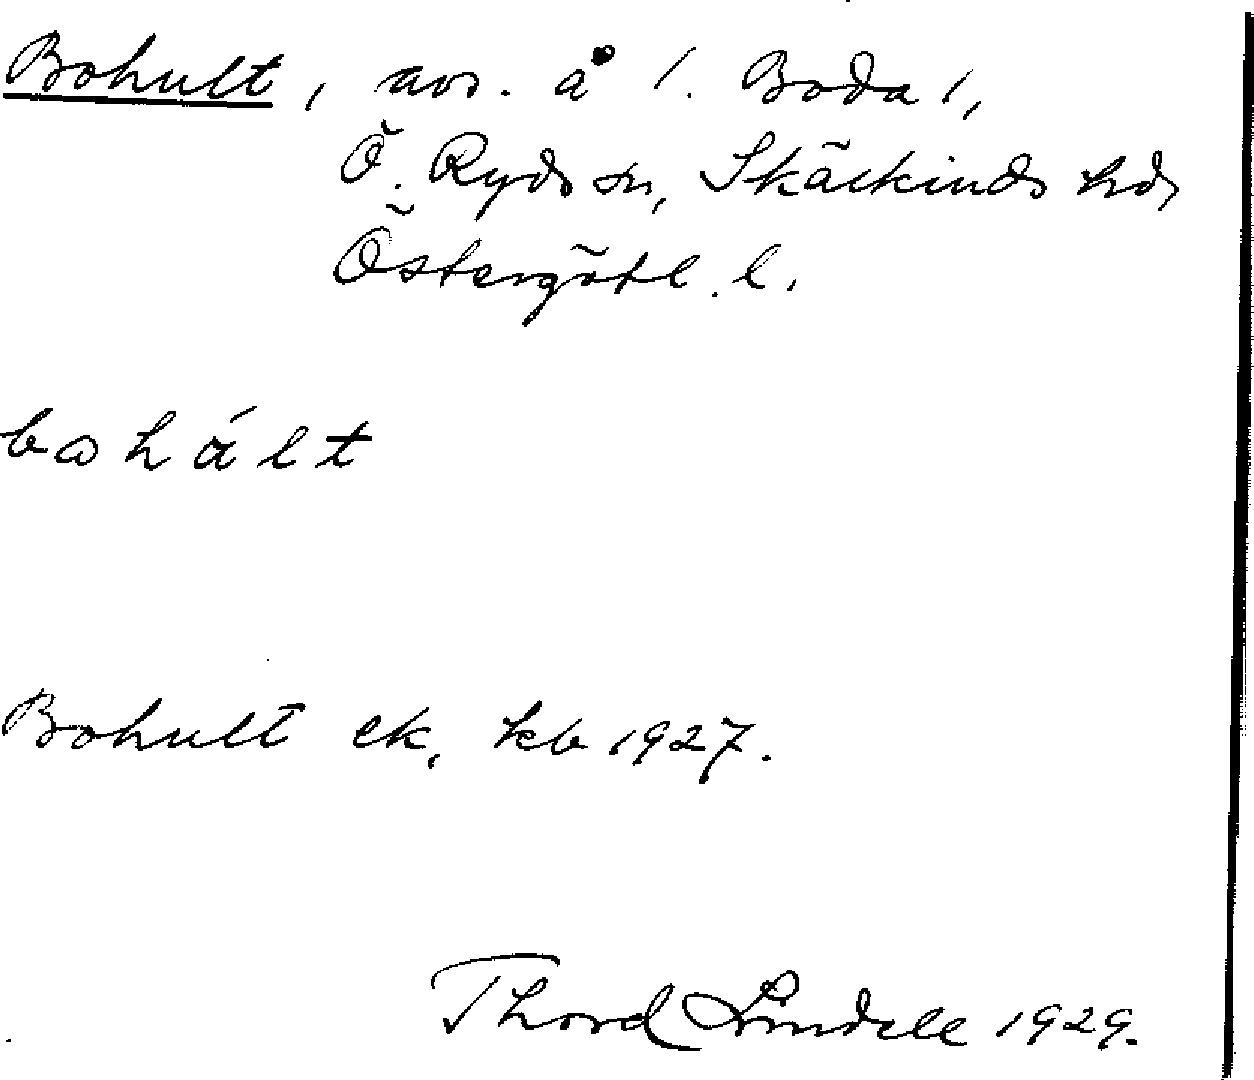 Bohult, avs. å l. Boda 1,
Ö. Ryds sn, Skärkinds hd,
Östergötl. l.
bohált
Bohult ek, kb 1927.
Thord Lindell 1929.